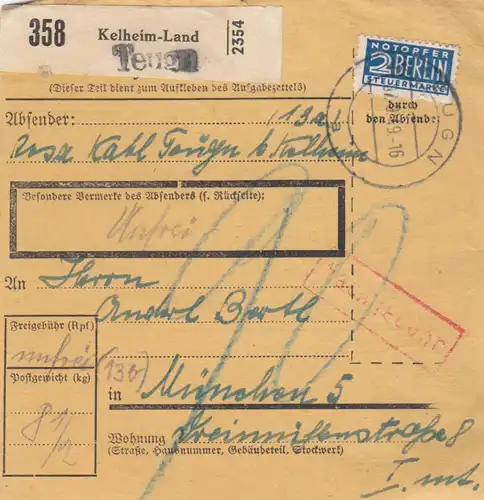 358 Kelheim-Land 2354
Teugn
NOTOPFER
2 BERLIN
STEUERMARKE
(Dieser Teil dient zum Aufkleben des Aufgabezettels)
durch
den Absender
TEUGN
Absender: (13a)
Rosa Kabl Teugn b. Kelheim
Besondere Vermerke des Absenders (s. Rückseite):
Unfrei
An Herrn
Andrl Bartl
Freigebühr (Rpf)
unfrei
(13b)
Postgewicht (kg)
8 1/2
in München 5
Wohnung
(Straße, Hausnummer, Gebäudeteil, Stockwerk)
Nachgebühr